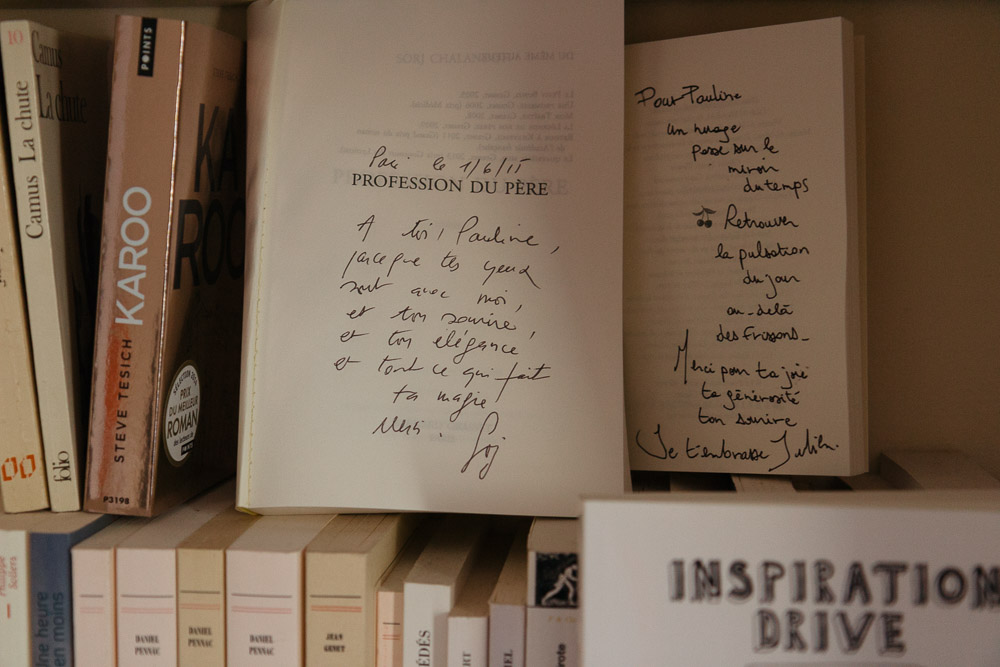 10
Camus La chute
folio
Camus
La chute
POINTS
STEVE TESICH KAROO
P3198
KA
ROO
SÉLECTION
PRIX
DU MEILLEUR
ROMAN
SORJ CHALANDON
DU MÊME AUTEUR
Paris le 1/6/15
PROFESSION DU PÈRE
A toi, Pauline,
parce que tes yeux
sont avec moi,
et ton sourire,
et ton élégance
et tout ce qui fait
ta magie
Merci. Sorj
Pour Pauline
un nuage
passe sur le
miroir
du temps
Retrouver
la pulsation
du jour
au-delà
des frissons
Merci pour ta joie
ta générosité
ton sourire
Je t'embrasse Julien.
Philippe
Sollers
ne heure
en moins
DANIEL
PENNAC
DANIEL
PENNAC
DANIEL
PENNAC
JEAN
GENET
ÉDÉS
RT
IEL
rote
INSPIRATION
DRIVE